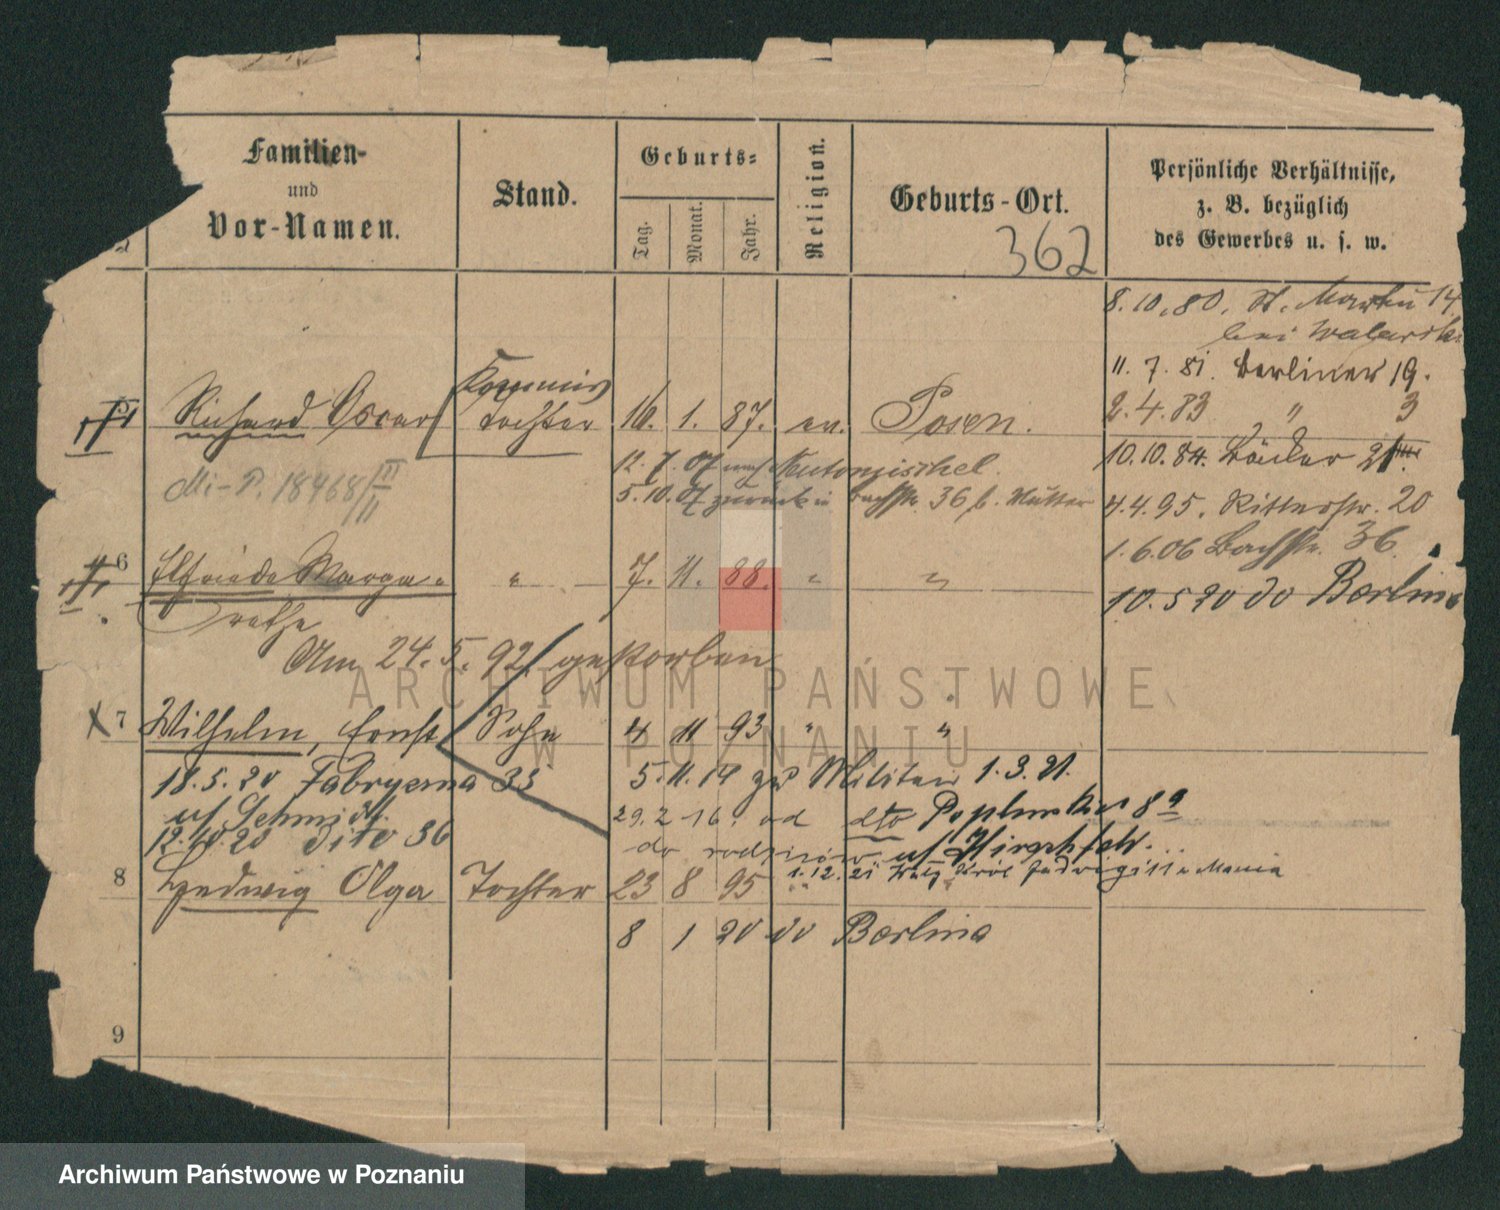 Familien-
und
Vor-Namen.
Stand.
Geburts-
Tag.
Monat.
Jahr.
Religion.
Geburts-Ort.
362
Persönliche Verhältnisse,
z. B. bezüglich
des Gewerbes u. s. w.
8.10.80. St. Martin 14
bei
11. 7. 81. Berliner 19.
2. 4. 83 " 3
10.10.84. Bäcker
4.4.95. Ritterstr. 20
1.6.06 Bachstr. 36
10. 5 20 do Berlina
5 Richard Oscar Kommis Tochter 16. 1. 87. ev. Posen.
Mi-P. 18468/III
II
12. 7. 07 nach Neutomischel.
5.10.07 zurück Bachstr. 36 b. Mutter
6 Elfriede Marga- " 7. 11. 88. " "
rethe
Am 24. 5. 92 gestorben
7 Wilhelm, Ernst Sohn 4 11 93 " "
18.5.20 Fabryczna 33
uf Schmidt
12.10.20 dito 36
5.11.14 zum Militär 1.3.21.
29.2 16. od dto 8a
do rodziców uf
1.12.21 Król Jadwigi 11 u Mania
8 Hedwig Olga Tochter 23 8 95 "
8 1 20 do Berlina
9
ARCHIWUM PAŃSTWOWE
W POZNANIU
Archiwum Państwowe w Poznaniu